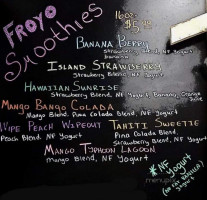 Froyo Smoothies
16oz.
Banana Berry
Strawberry Blend, NF Yogurt
Banana
Island Strawberry
Strawberry Blend, NF Yogurt
Hawaiian Sunrise
Strawberry Blend, NF Yogurt, Banana, Orange
Mango Bango Colada
Mango Blend, Pina Colada Blend, NF Yogurt
Wipe Peach Wipeout
Peach Blend, NF Yogurt
Tahiti Sweetie
Pina Colada Blend,
Strawberry Blend, NF Yogurt
Mango Typhoon Lagoon
Mango Blend, NF Yogurt
*NF
Yogurt